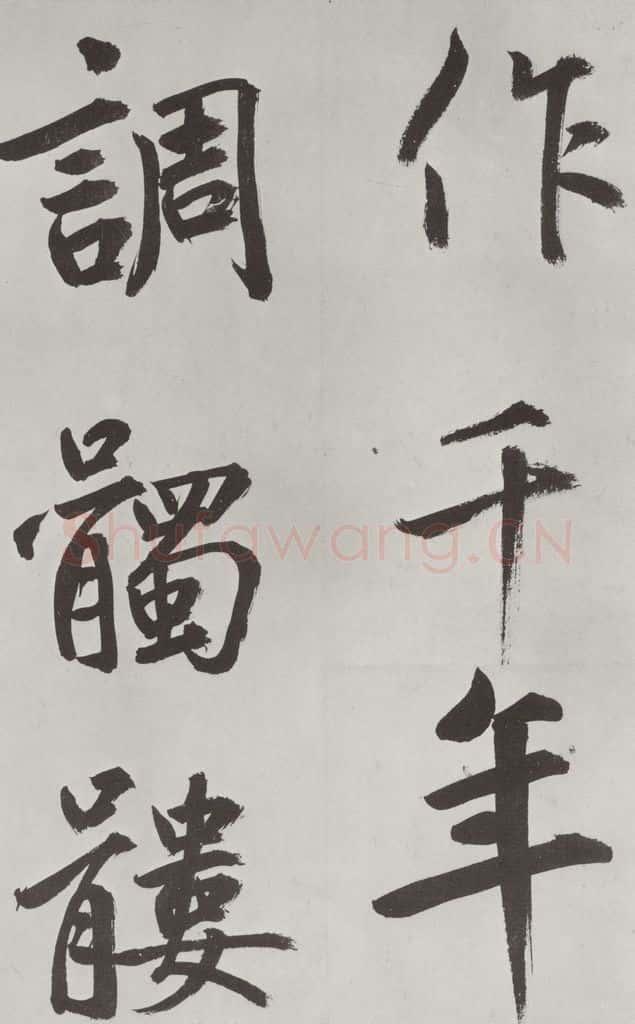 作千年
調髑髏
Shufawang.CN